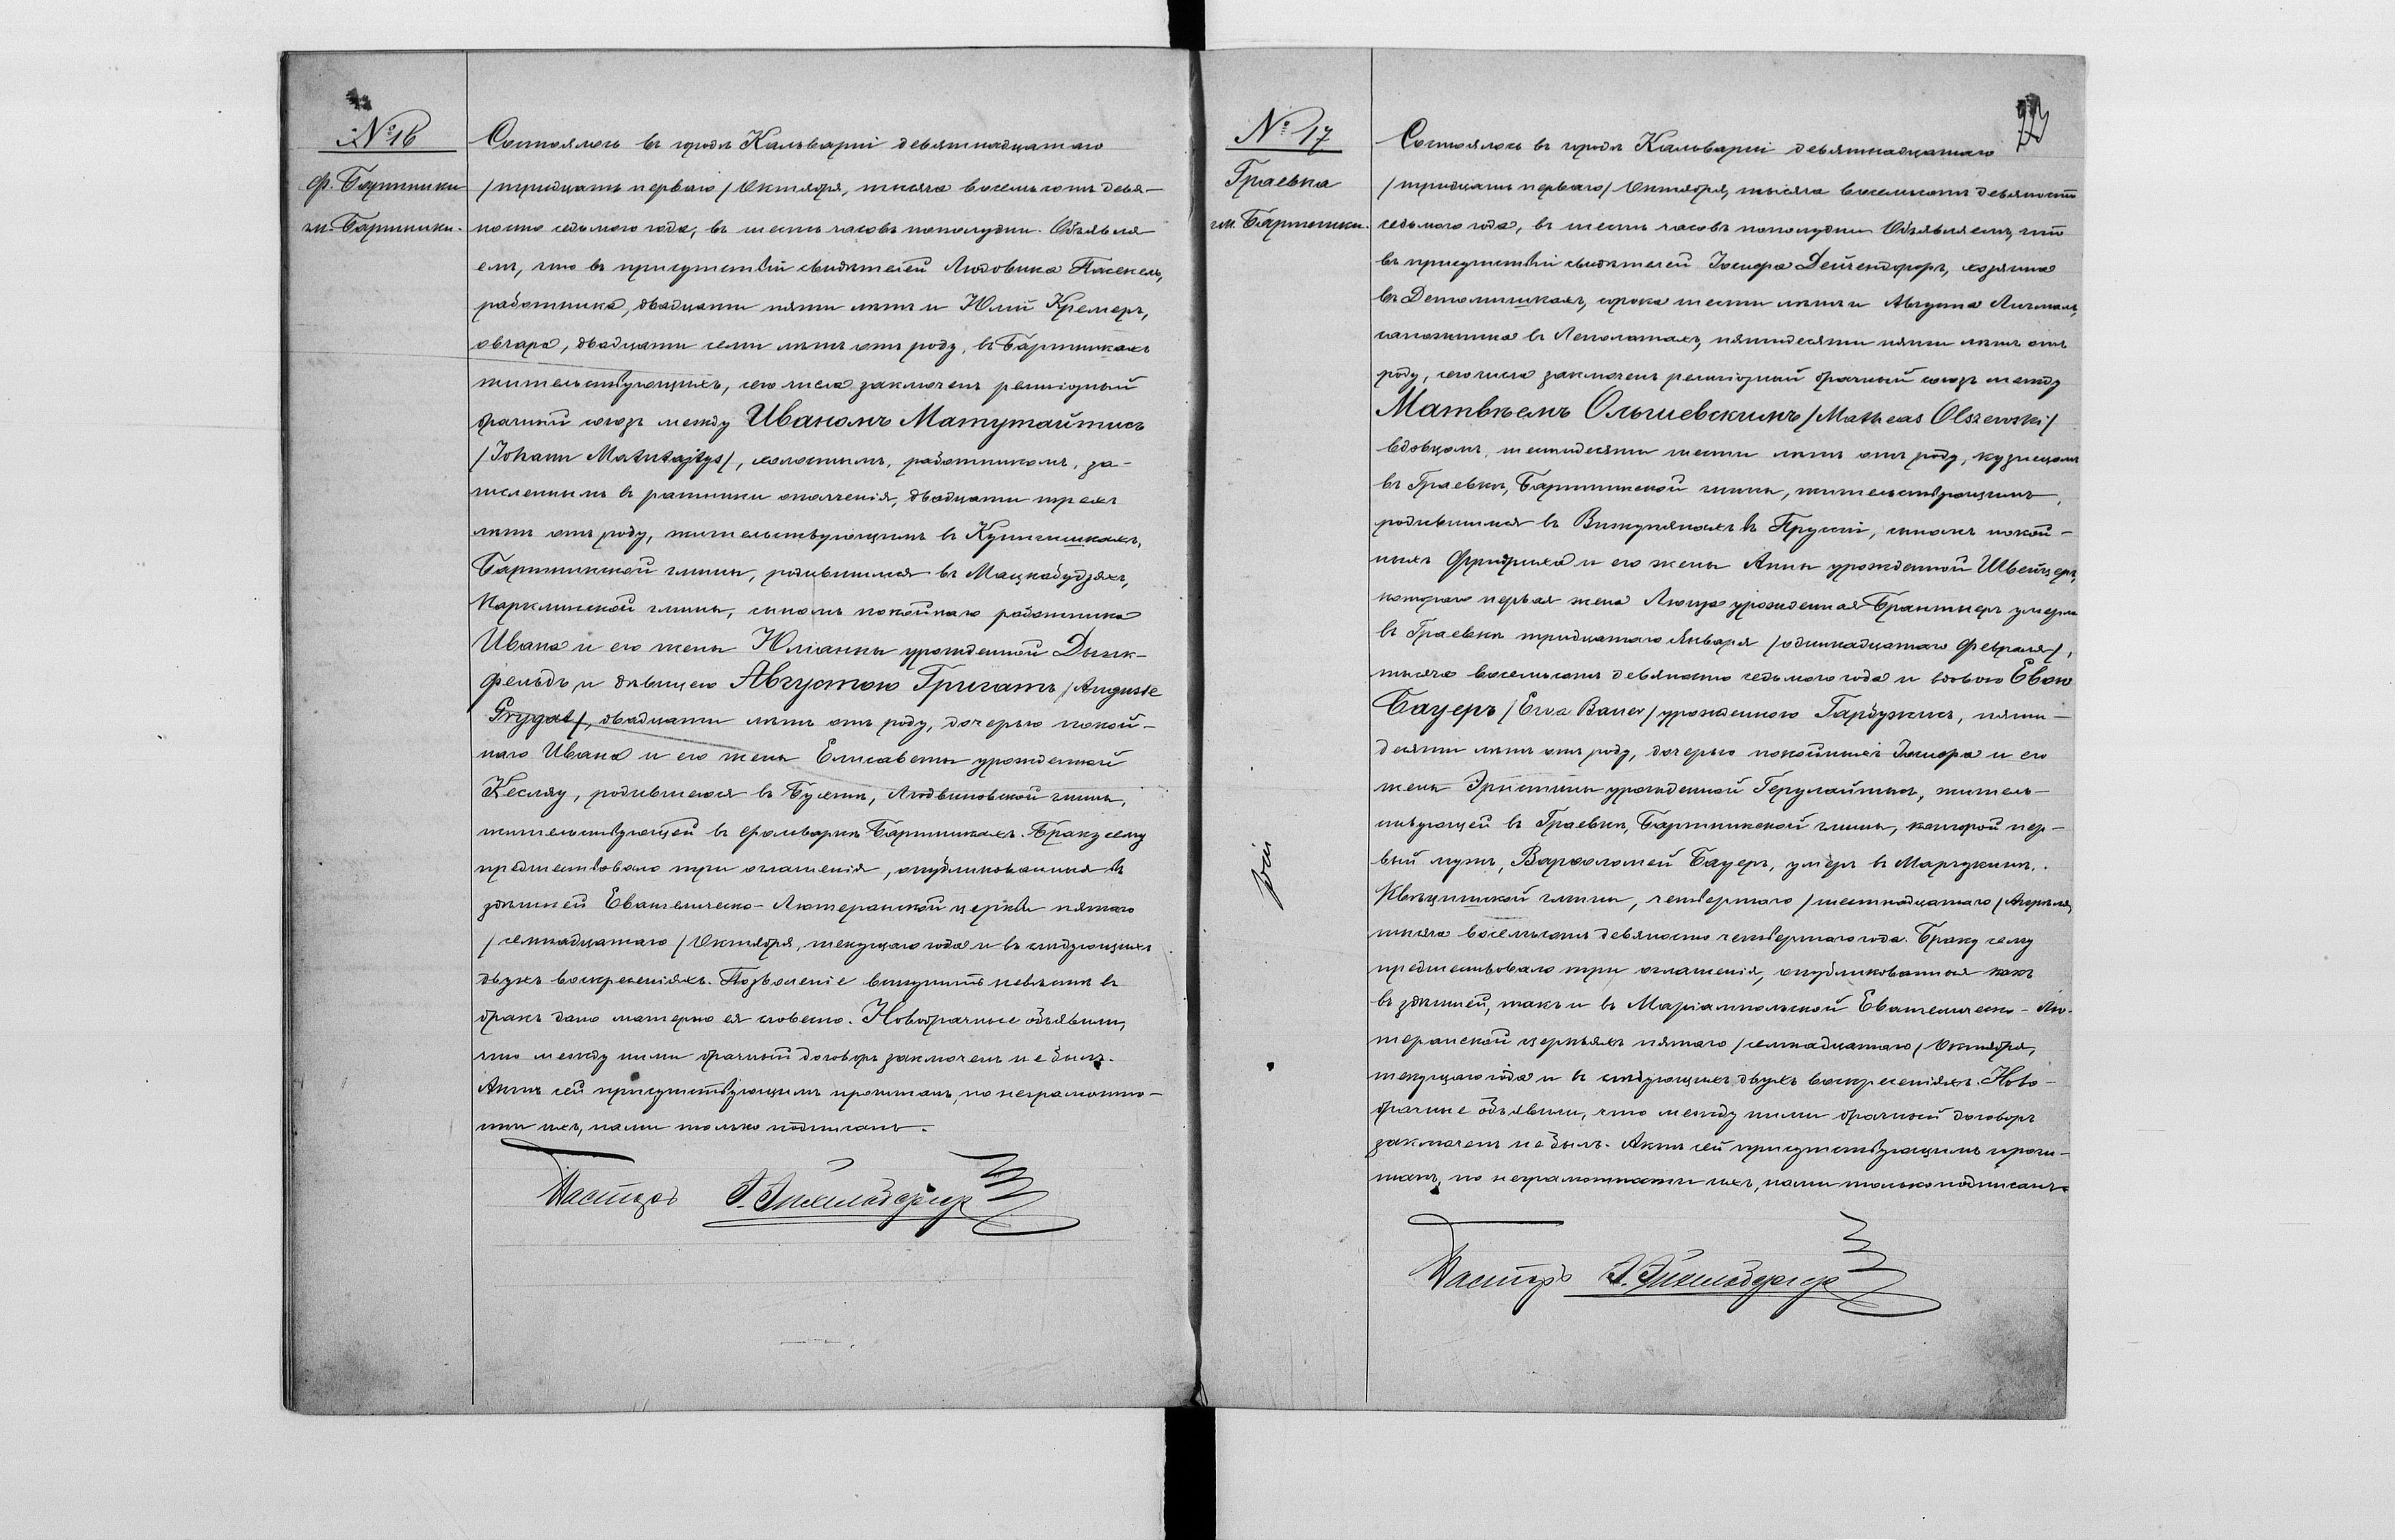 № 16
ф. Бартники
гм. Бартники.
Состоялось въ городѣ Кальваріи девятнадцатаго
/тридцать перваго/ Октября, тысяча восемьсотъ девя-
носто седьмого года, въ шесть часовъ пополудни. Объявля
емъ, что въ присутствіи свидѣтелей Людовика
работника, двадцати пяти лѣтъ и Юлій Кремеръ,
овчара, двадцати семи лѣтъ отъ роду, въ Бартникахъ
жительствующихъ, сего числа заключенъ религіозный
брачный союзъ между Иваномъ Матутайтисъ
/Johann Matutajtys/, холостымъ, работникомъ, за-
численнымъ въ ратники ополченія, двадцати трехъ
лѣтъ отъ роду, жительствующимъ въ
Бартникской гмины, родившимся въ Мацкобудзяхъ,
гмины, сыномъ покойнаго работника
Ивана и его жены Юліанны урожденной Дыкк-
фельдъ, и дѣвицею Августою Григатъ /Auguste
Grygat/, двадцати лѣтъ отъ роду, дочерью покой-
наго Ивана и его жены Елисаветы урожденной
Кесляу, родившеюся въ Людвиновской гмины,
жительствующей въ фольваркѣ Бартникахъ. Браку сему
предшествовало три оглашенія, опубликованныя въ
здѣшней Евангелическо-Лютеранской церкви пятаго
/семнадцатаго/ Октября, текущаго года и въ слѣдующихъ
двухъ воскресеніяхъ. Позволеніе вступить невѣстѣ въ
бракъ дано матерью ея словесно. Новобрачные объявили,
что между ними брачный договоръ заключенъ не былъ.
Актъ сей присутствующимъ прочитанъ, по неграмотно-
сти ихъ, нами только подписанъ.
Пасторъ
№ 17
Граевка
гм. Бартники.
Состоялось въ городѣ Кальваріи девятнадцатаго
/тридцать перваго/ Октября, тысяча восемьсотъ девяносто
седьмого года, въ шесть часовъ пополудни Объявляемъ, что
въ присутствіи свидѣтелей Іосифа Дейчендорфъ, хозяина
въ сорока шести лѣтъ и Августа
сапожника въ пятидесяти пяти лѣтъ отъ
роду, сего числа заключенъ религіозный брачный союзъ между
Матвѣемъ Ольшевскимъ /Matheas Olszewski/
вдовцомъ, шестидесяти шести лѣтъ отъ роду, кузнецомъ
въ Граевкѣ, Бартникской гмины, жительствующимъ,
родившимся въ въ Пруссіи, сыномъ покой-
ныхъ Фридриха и его жены Анны урожденной Швейцеръ,
котораго первая жена урожденная Брантнеръ умерла
въ Граевкѣ тридцатаго Января /одиннадцатаго Февраля/,
тысяча восемьсотъ девяносто седьмого года и вдовою Евою
Бауеръ /Ewa Bauer/ урожденною пяти-
десяти лѣтъ отъ роду, дочерью покойныхъ Іосифа и его
жены урожденной Герулайтисъ, житель-
ствующей въ Граевкѣ, Бартникской гмины, которой пер-
вый мужъ, Варфоломей Бауеръ, умеръ въ
гмины, четвертаго /шестнадцатаго/ Апрѣля,
тысяча восемьсотъ девяносто четвертаго года. Браку сему
предшествовало три оглашенія, опубликованныя какъ
въ здѣшней, такъ и въ Маріампольской Евангелическо-Лю-
теранской церквяхъ пятаго /семнадцатаго/ Октября,
текущаго года и въ слѣдующихъ двухъ воскресеніяхъ. Ново-
брачные объявили, что между ними брачный договоръ
заключенъ не былъ. Актъ сей присутствующимъ прочи-
танъ, по неграмотности ихъ, нами только подписанъ.
Пасторъ